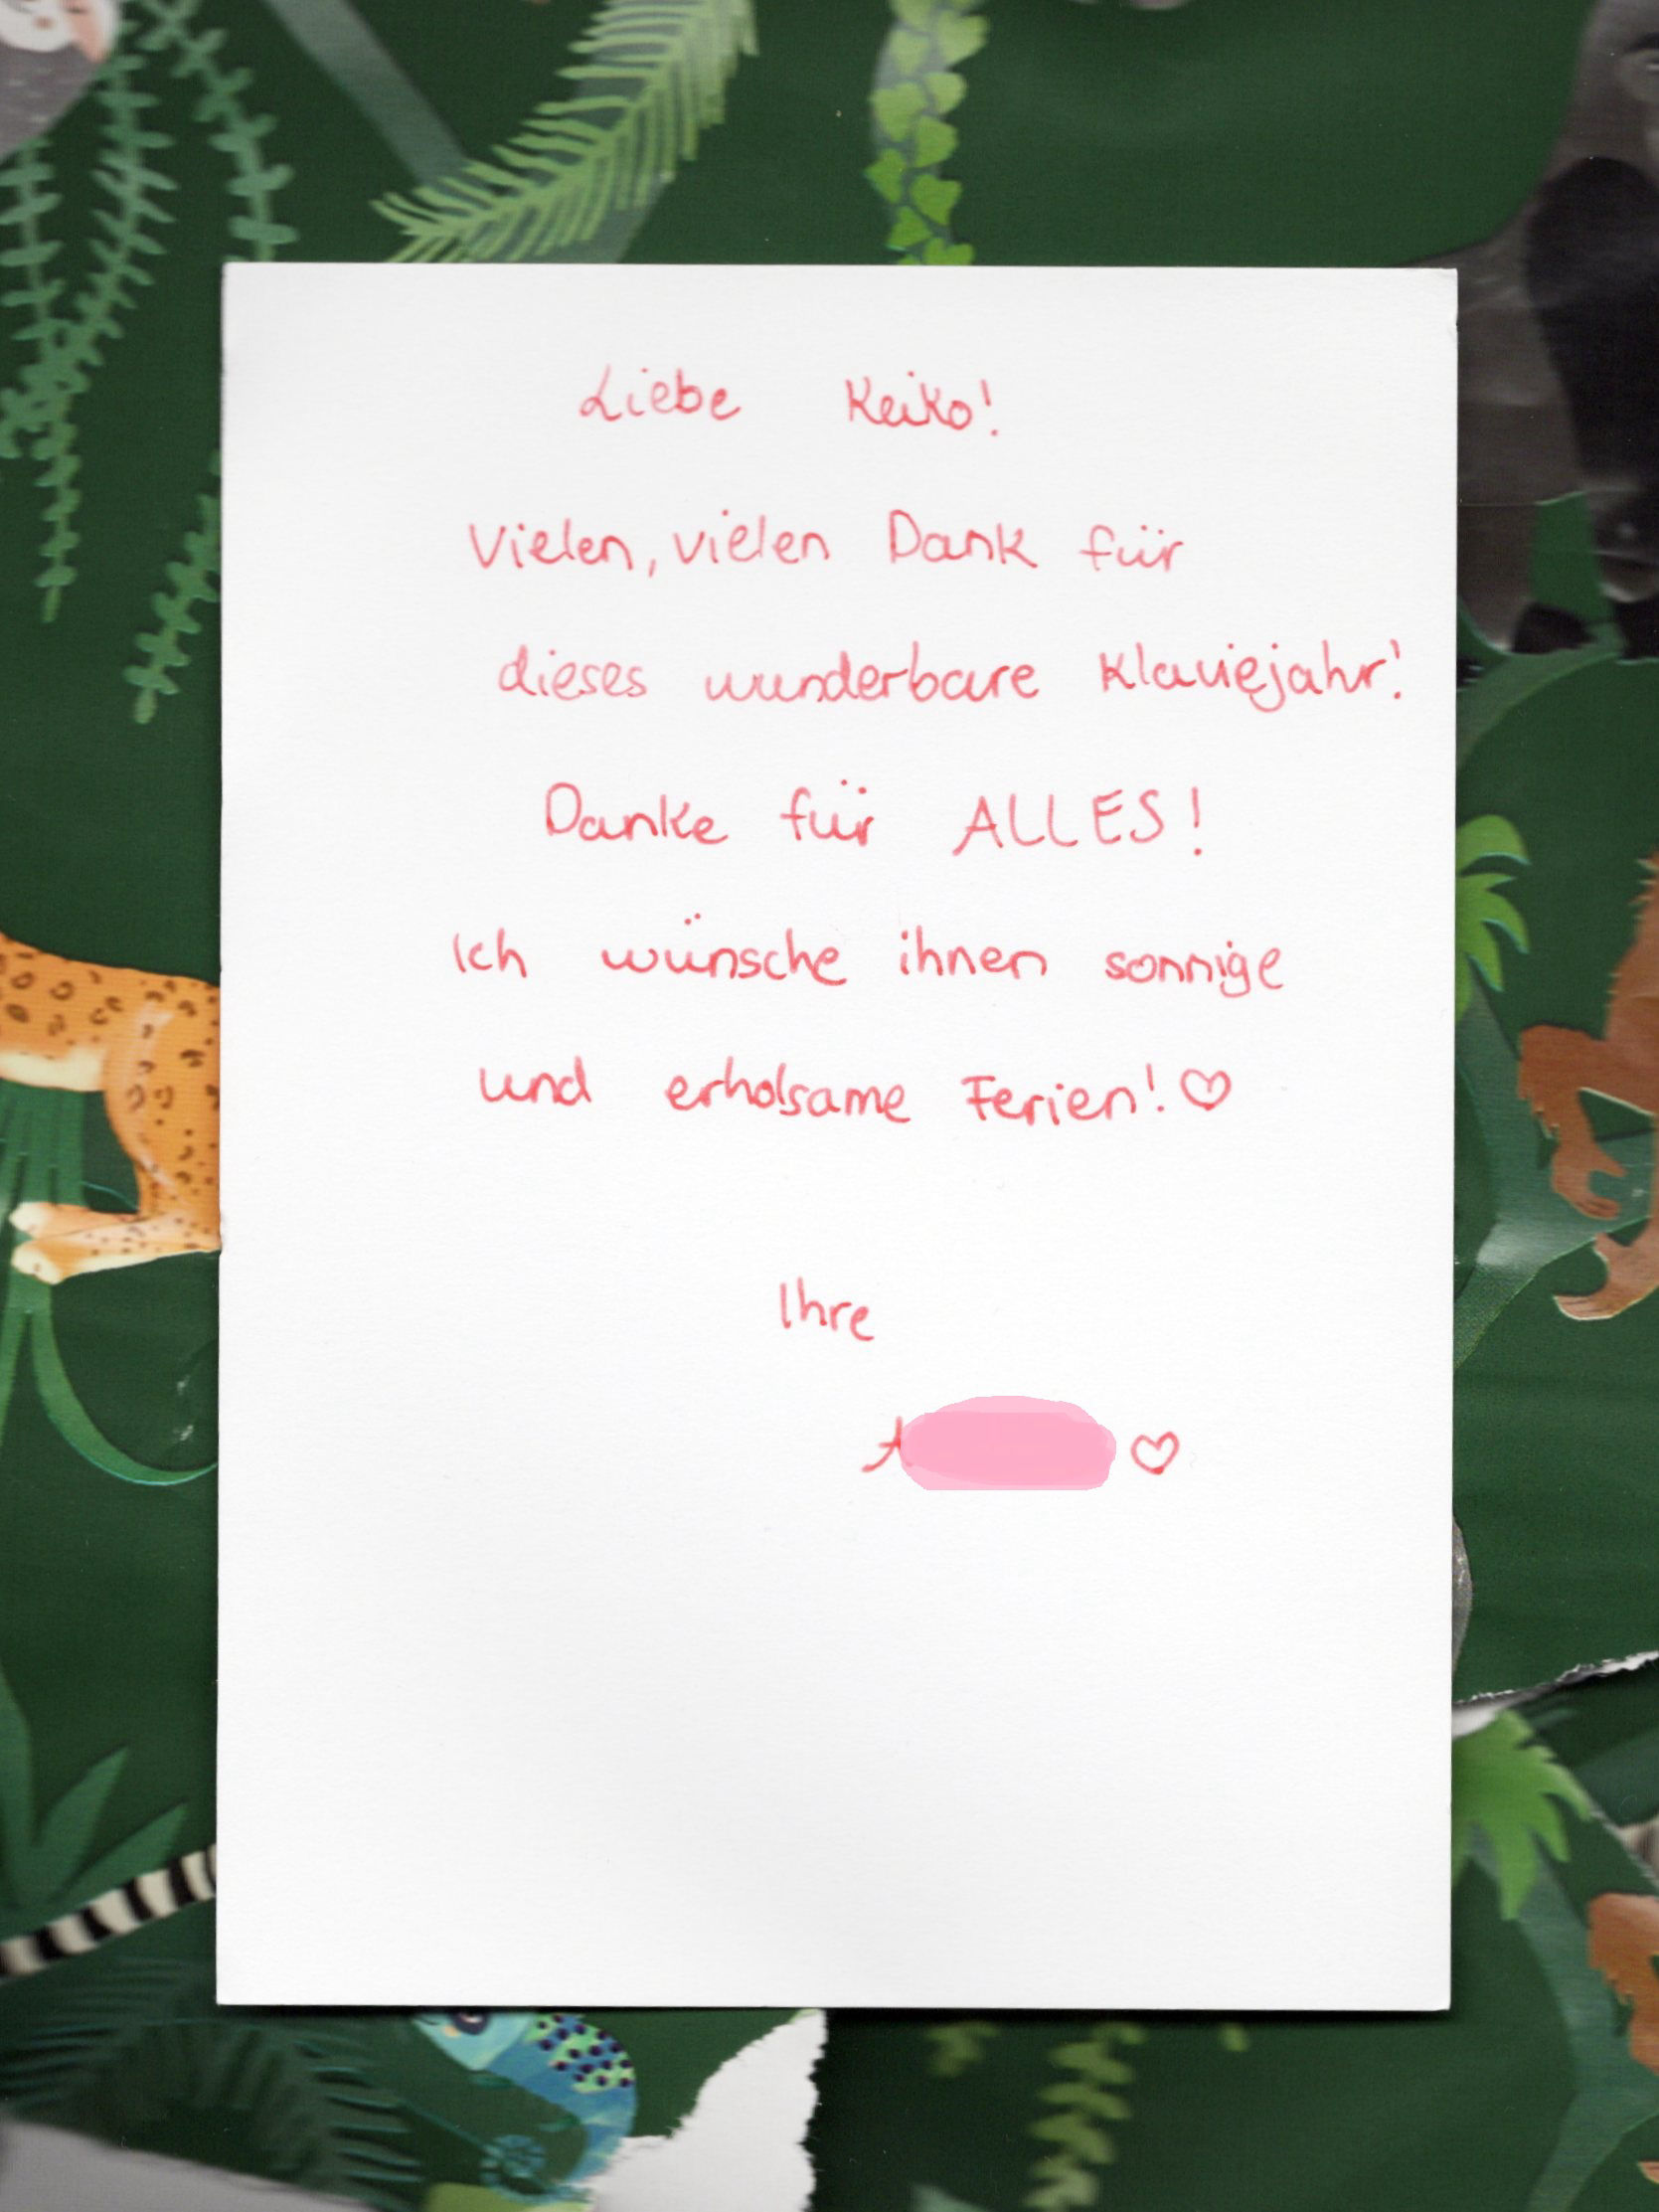 Liebe Keiko!
Vielen, vielen Dank für
dieses wunderbare Klaviejahr!
Danke für ALLES!
Ich wünsche ihnen sonnige
und erholsame Ferien! ♡
Ihre
A ♡